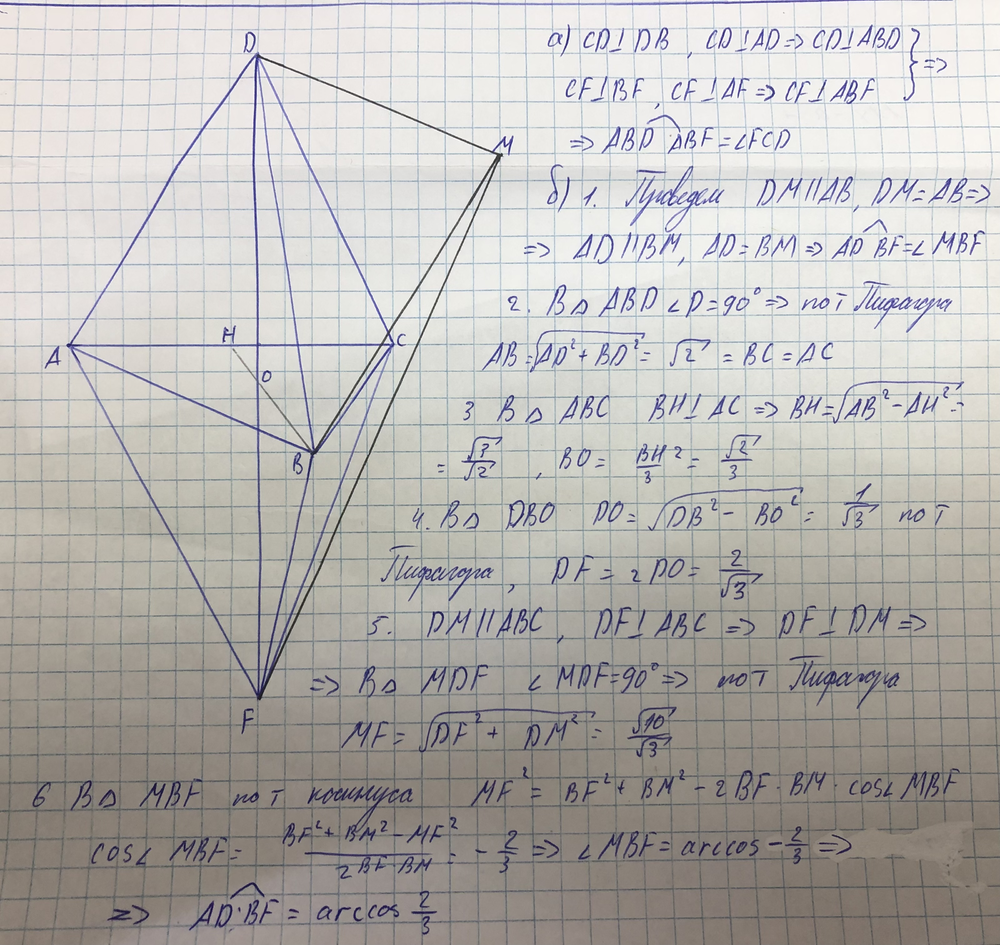 D
M
A
H
C
O
B
F
а) CD⊥DB, CD⊥AD ⇒ CD⊥ABD
CF⊥BF, CF⊥AF ⇒ CF⊥ABF } ⇒
⇒ ABD^ABF = ∠FCD
б) 1. Проведем DM∥AB, DM=AB ⇒
⇒ AD∥BM, AD=BM ⇒ AD^BF = ∠MBF
2. В△ ABD ∠D=90° ⇒ по т Пифагора
AB = √(AD²+BD²) = √2 = BC = AC
3 В△ ABC BH⊥AC ⇒ BH = √(AB²-AH²) =
= √3/√2, BO = BH/3 2 = √2/3
4. В△ DBO DO = √(DB²-BO²) = 1/√3 по т
Пифагора, DF = 2DO = 2/√3
5. DM∥ABC, DF⊥ABC ⇒ DF⊥DM ⇒
⇒ В△ MDF ∠MDF=90° ⇒ по т Пифагора
MF = √(DF²+DM²) = √10/√3
6 В△ MBF по т косинуса MF² = BF²+BM²-2BF·BM·cos∠MBF
cos∠MBF = (BF²+BM²-MF²)/(2BF·BM) = -2/3 ⇒ ∠MBF = arccos -2/3 ⇒
⇒ AD^BF = arccos 2/3